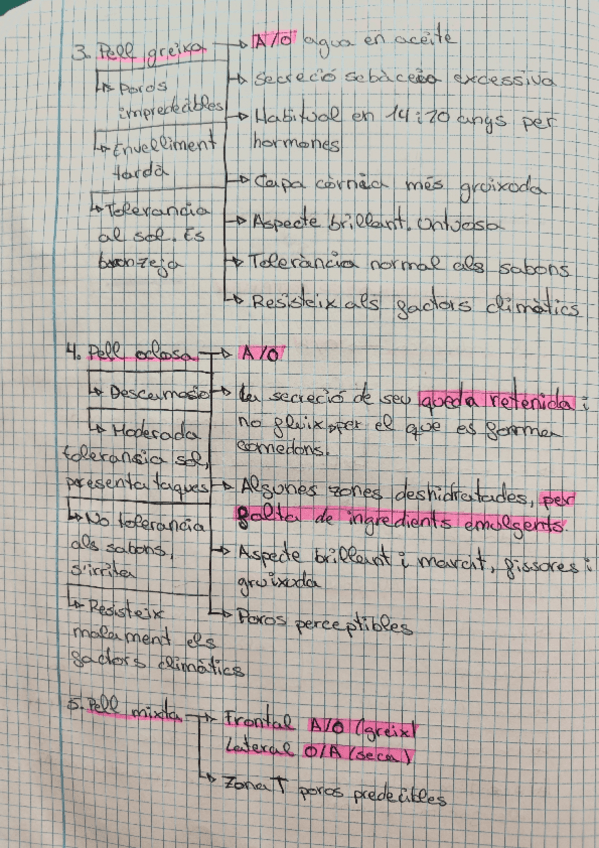 3. Pell greixa → A/O agua en aceite
↳ Poros
impredecibles
↳ Envelliment
tardà
↳ Tolerancia
al sol. Es
bronzeja
→ Secreció sebàcea excessiva
→ Habitual en 14 i 20 anys per
hormones
→ Capa còrnea més groixoda
→ Aspecte brillant. Untuosa
→ Toleràncìa normal als sabons
↳ Resisteix als factors climàtics
4. Pell oclosa → A/O
↳ Descamació
↳ Moderada
tolerancia sol,
presenta taques
↳ No tolerancia
als sabons,
s'irrita
↳ Resisteix
malament els
factors climàtics
→ La secreció de seu queda retenida i
no fluix, per el que es formen
comedons.
→ Algunes zones deshidratades, per
falta de ingredients emolgents.
→ Aspecte brillant i marcit, fissores i
groixoda
↳ Poros perceptibles
5. Pell mixta → Frontal A/O (greix)
Lateral O/A (seca)
↳ Zona T poros predecibles